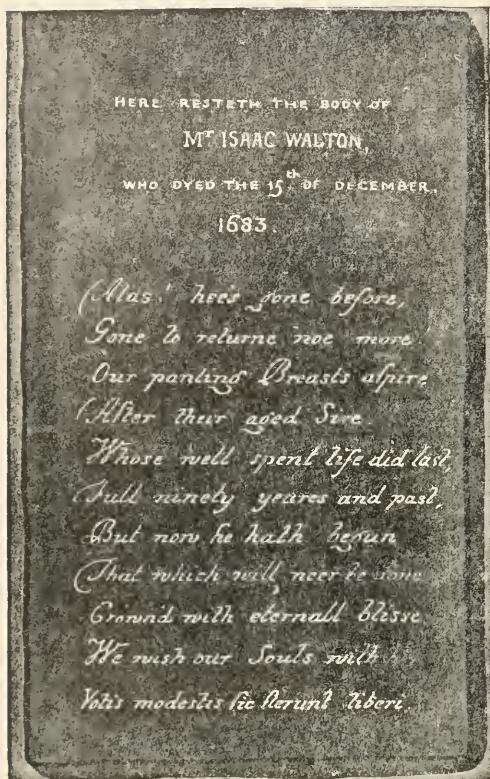 HERE RESTETH THE BODY OF
Mr ISAAC WALTON,
WHO DYED THE 15th OF DECEMBER,
1683.
Alas! hee's gone before,
Gone to returne noe more
Our panting Breasts aspire
After their aged Sire.
Whose well spent life did last,
Full ninety yeares and past,
But now he hath begun
That which will neer be done
Crown'd with eternall blisse
We wish our Souls with
Votis modestis sic flerunt liberi.